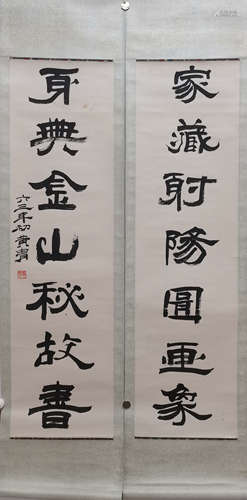 家藏射陽圖画象
身典金山秘故書
六三年初黄濬